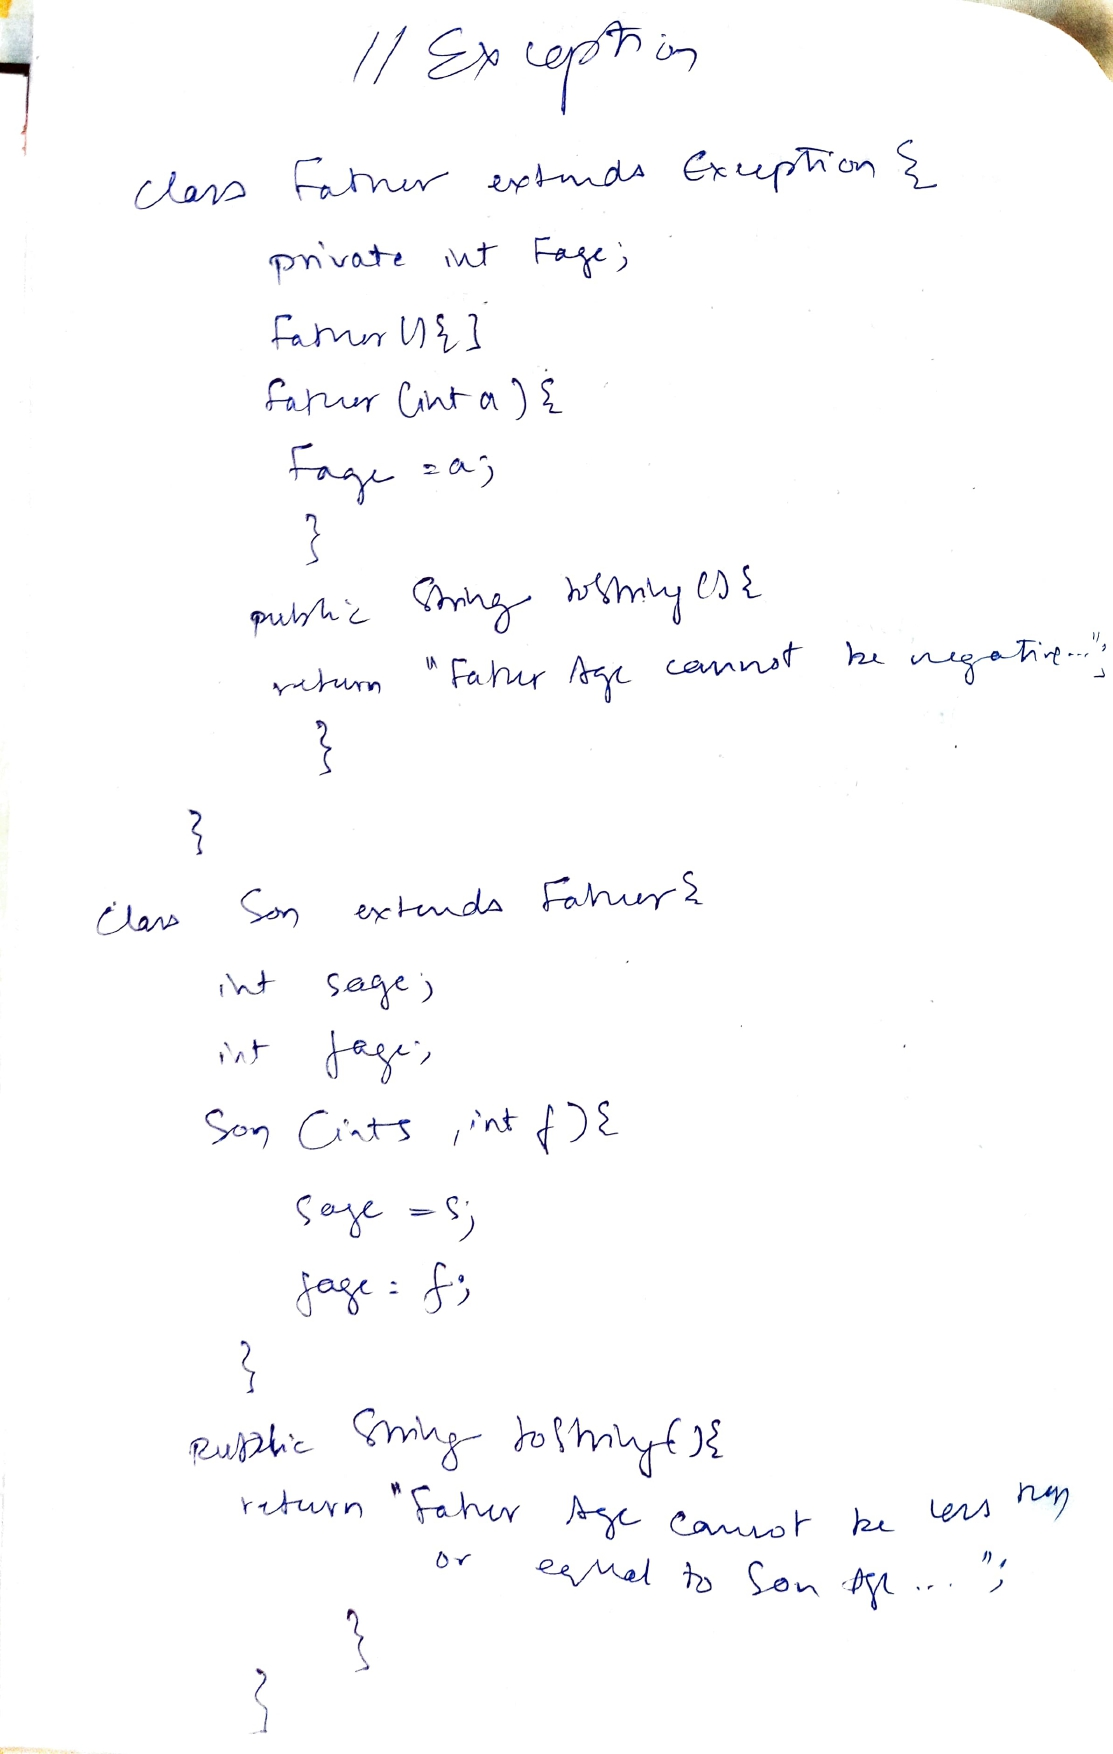 // Exception
class Father extends Exception {
private int Fage;
Father(){}
father (int a) {
Fage = a;
}
public String toString() {
return "Father Age cannot be negative...";
}
}
class Son extends Father {
int sage;
int fage;
Son (int s, int f) {
sage = s;
fage = f;
}
Public String toString() {
return "Father Age cannot be less than
or equal to Son Age ... ";
}
}